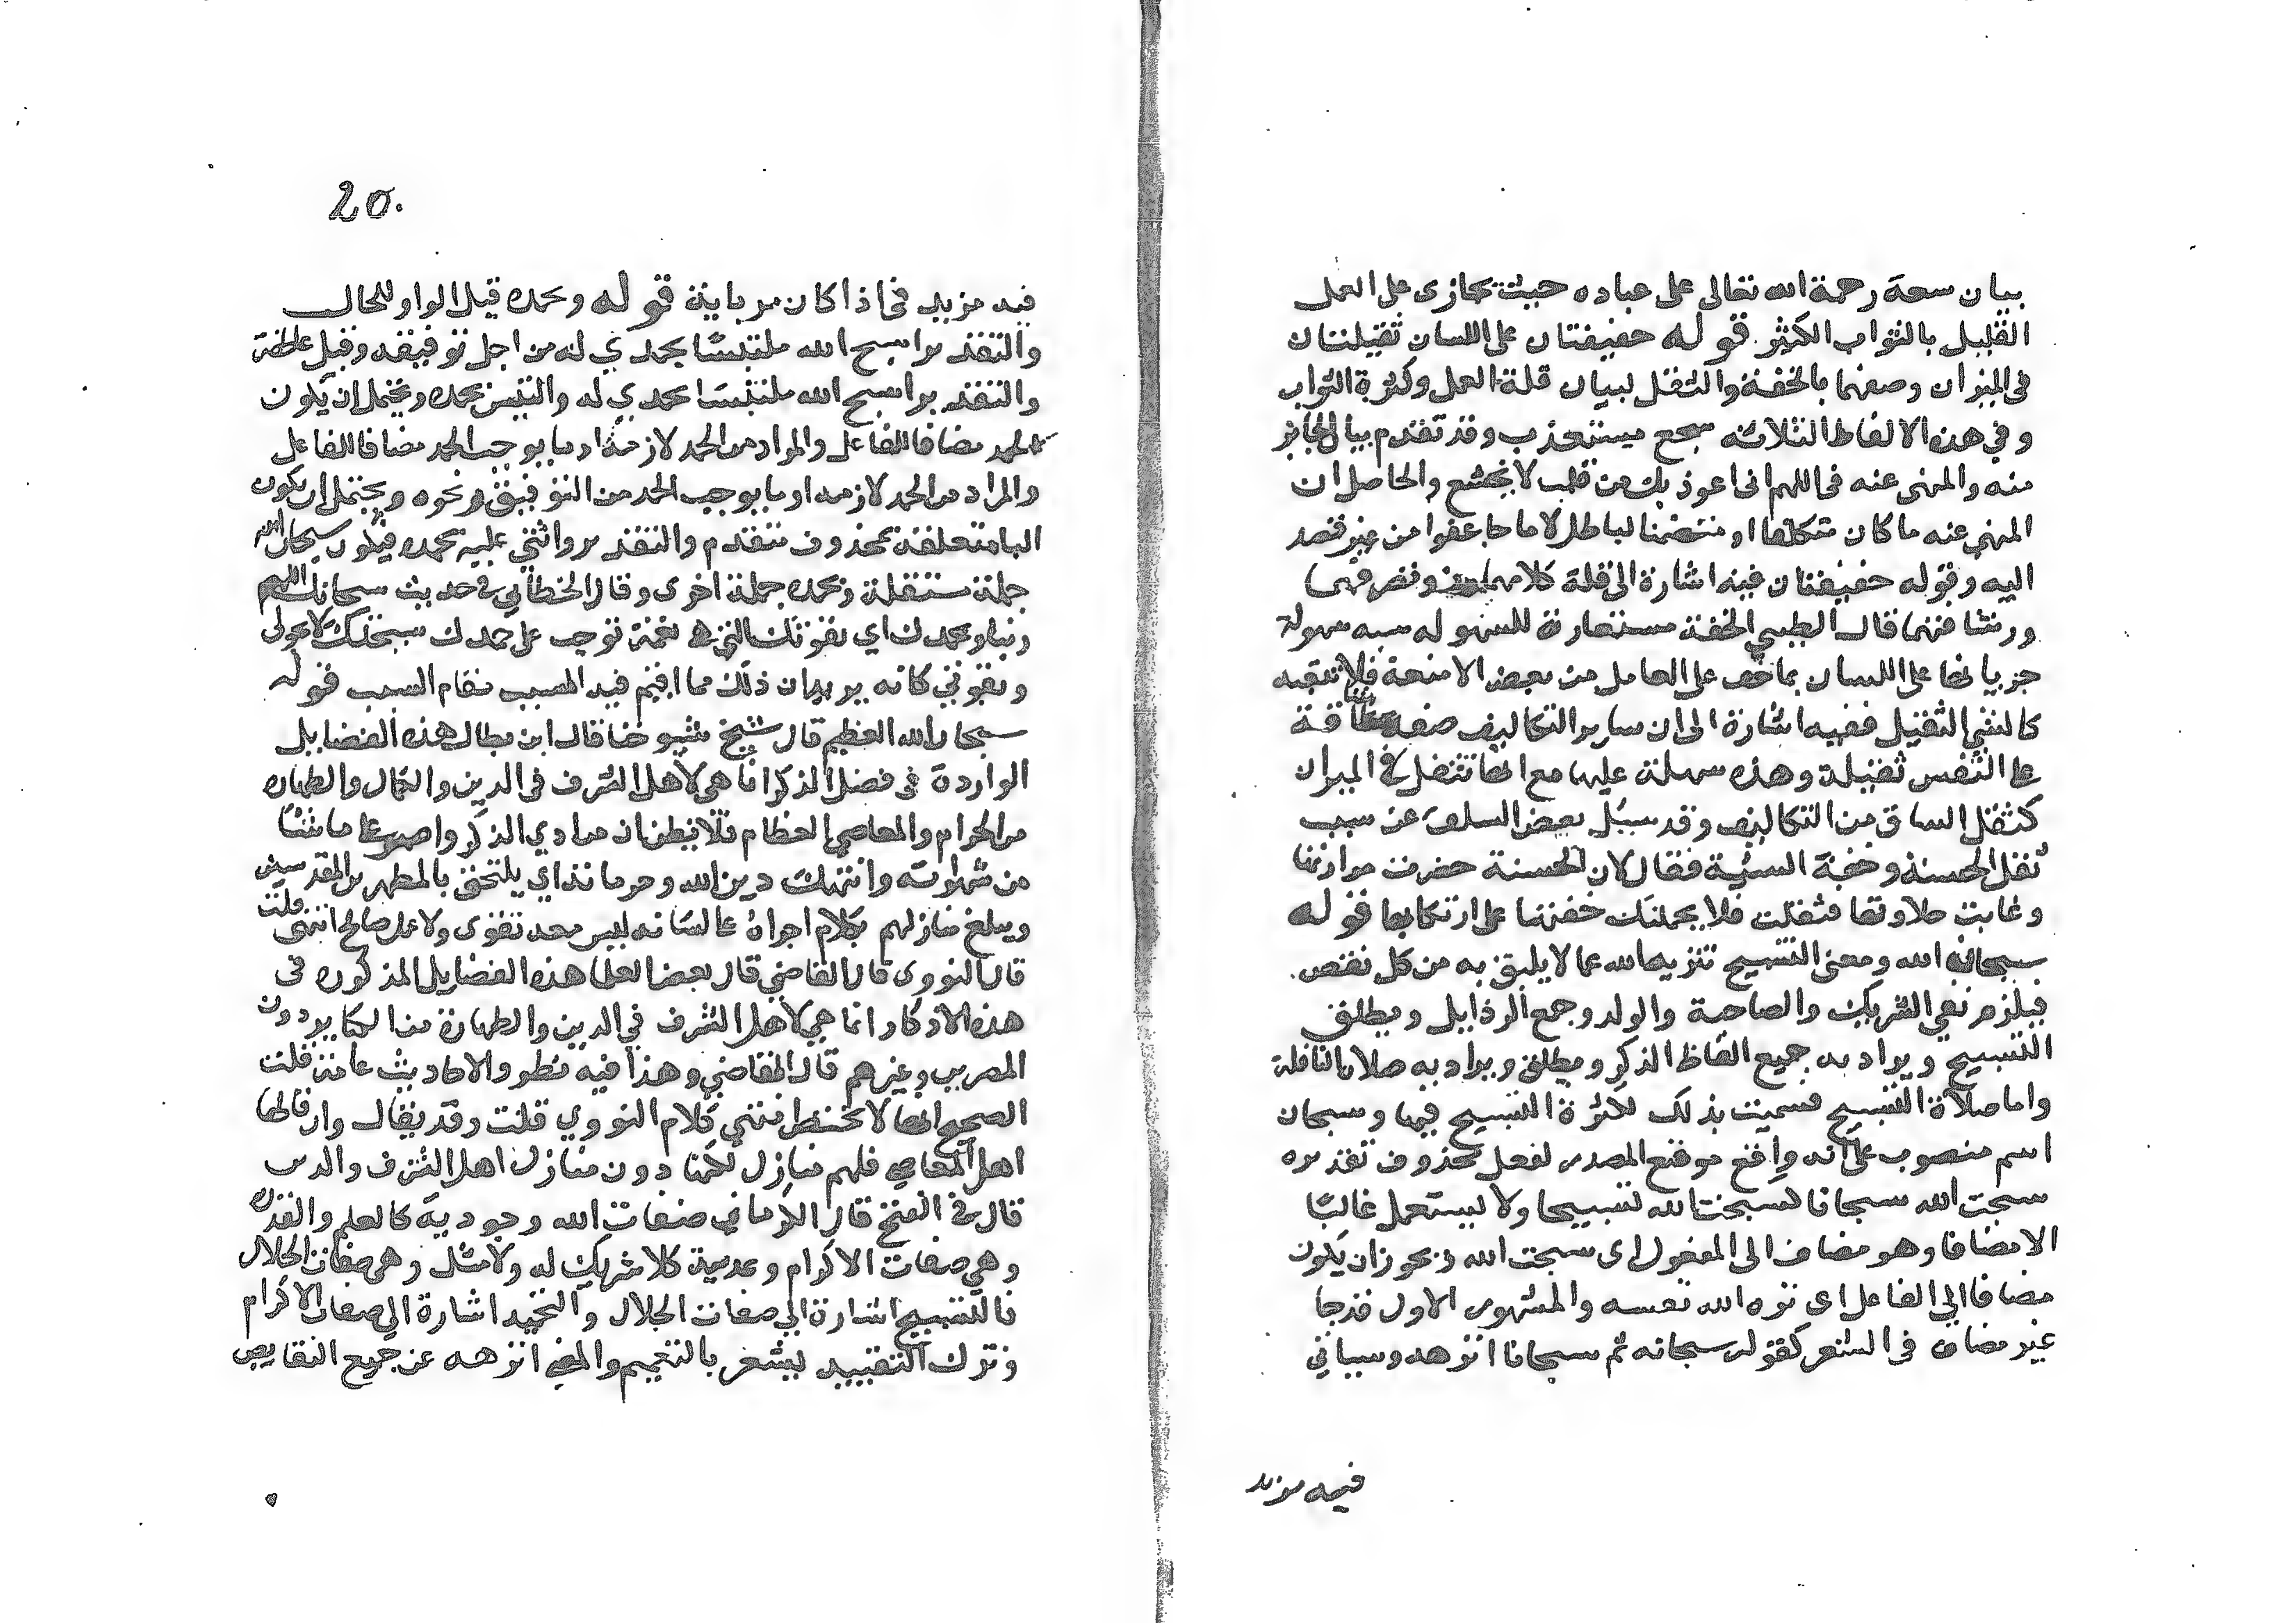 بيان سعة رحمة الله تعالى على عباده حيث يجازى على العمل
القليل بالثواب الكثير قوله خفيفتان على اللسان ثقيلتان
فى الميزان وصفهما بالخفة والثقل لبيان قلة العمل وكثرة الثواب
وفي هذه الالفاظ الثلاثه سجع مستعذب وقد تقدم بيان الجائز
منه والمنهى عنه فى اللهم انى اعوذ بك من قلب لا يخشع والحاصل ان
المنهى عنه ما كان متكلفا او متضمنا لباطل لا ما جا عفوا من غير قصد
اليه وقوله خفيفتان فيه اشارة الى قلة كلامهما
ورشاقتهما قال الطيبي الخفة مستعارة للسهوله شبه سهولة
جريانها على اللسان بما خف على العامل من بعض الامتعة فلا تتعبه
كالشي الثقيل ففيه اشارة الى ان ساير التكاليف صعبه شاقة
على النفس ثقيلة وهذه سهلة عليها مع انها تثقل في الميزان
كثقل الشاق من التكاليف وقد سيل بعض السلف عن سبب
ثقل الحسنة وخفة السيئة فقال لان الحسنة حضرت مرارتها
وغابت حلاوتها فثقلت فلا يحملنك خفتها على ارتكابها قوله
سبحان الله ومعنى التسبيح تنزيه الله عما لا يليق به من كل نقص
فيلزم نفي الشريك والصاحبة والولد وجمع الرذايل ويطلق
التسبيح ويراد به جميع الفاظ الذكر ويطلق ويراد به صلاة النافلة
واما صلاة التسبيح فسميت بذلك لكثرة التسبيح فيها وسبحان
اسم منصوب على انه واقع موقع المصدر لفعل محذوف تقديره
سبحت الله سبحانا كسبحت الله تسبيحا ولا يستعمل غالبا
الا مضافا وهو مضاف الى المفعول اى سبحت الله ويجوز ان يكون
مضافا الى الفاعل اى نزه الله نفسه والمشهور الاول وقد جا
غير مضاف فى الشعر كقوله سبحانه ثم سبحانا انزهه وسياتي
فيه مزيد
20
فيه مزيد فى اذا كان من باينة قوله وبحمده قيل الواو للحال
والتقدير اسبح الله ملتبسا بحمدي له من اجل توفيقه وقيل عاطفة
والتقدير اسبح الله ملتبسا بحمدي له والتبس بحمده ويحتمل ان يكون
الحمد مضافا للفاعل والمراد من الحمد لازمه او ما يوجب الحمد مضافا للفاعل
والمراد من الحمد لازمه او ما يوجب الحمد من التوفيق ونحوه ويحتمل ان يكون
البا متعلقة بمحذوف متقدم والتقدير واثنى عليه بحمده فيكون سبحان الله
جملة مستقلة وبحمده جملة اخرى وقال الخطابي فى حديث سبحانك اللهم
ربنا وبحمدك اي بقوتك التي هى نعمة توجب على حمدك سبحتك لا بحولى
وبقوتي كانه يريد ان ذلك مما اقيم فيه المسبب مقام السبب قوله
سبحان الله العظيم قال شيخ شيوخنا قال ابن بطال هذه الفضايل
الواردة فى فضل الذكر انما هى لاهل الشرف فى الدين والكمال والطهارة
من الحرام والمعاصي العظام فلا تظن ان من ادي الذكر واصر على ما شا
من شهواته وانتهك دين الله وحرماته اي يلتحق بالمطهرين المقدسين
ويبلغ منازلهم بكلام اجراه على لسانه ليس معه تقوى ولا عمل صالح انتهى قلت
قال النووى قال القاضي قال بعض العلما هذه الفضايل المذكورة فى
هذه الاذكار انما هي لاهل الشرف في الدين والطهارة من الكباير دون
المصرين وغيرهم قال القاضي وهذا فيه نظر والاحاديث عامة قلت
الصحيح انها لا تختص انتهى كلام النووي قلت وقد يقال وان قالها
اهل المعاصي فلهم منازل لكنها دون منازل اهل الشرف والدين
قال فى الفتح قال الكرماني صفات الله وجودية كالعلم والقدرة
وهى صفات الاكرام وعدمية كلا شريك له ولا مثل وهى صفات الجلال
فالتسبيح اشارة الى صفات الجلال والتحميد اشارة الى صفات الاكرام
وترك التقييد يشعر بالتعميم والمعنى انزهه عن جميع النقايص